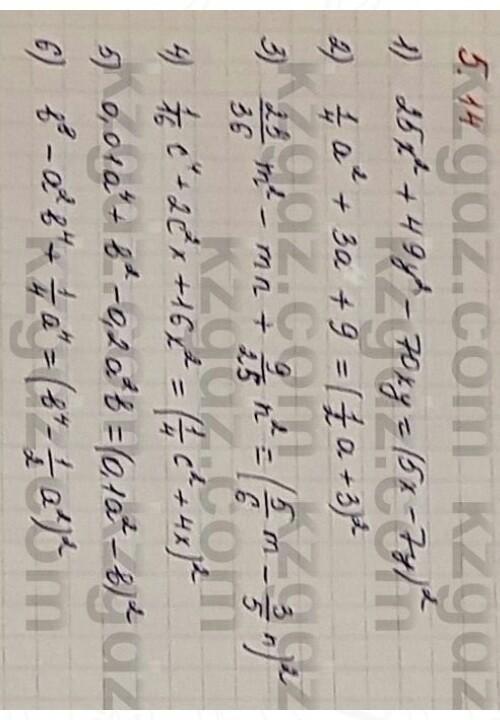 5.14
1) 25x² + 49y² - 70xy = (5x - 7y)²
2) 1/4 a² + 3a + 9 = (1/2 a + 3)²
3) 25/36 m² - mn + 9/25 n² = (5/6 m - 3/5 n)²
4) 1/16 c⁴ + 2c²x + 16x² = (1/4 c² + 4x)²
5) 0,01a⁴ + b² - 0,2a²b = (0,1a² - b)²
6) b⁸ - a²b⁴ + 1/4 a⁴ = (b⁴ - 1/2 a²)²
kzgaz.com
kzgaz.com
kzgaz.com
kzgaz.com
kzgaz